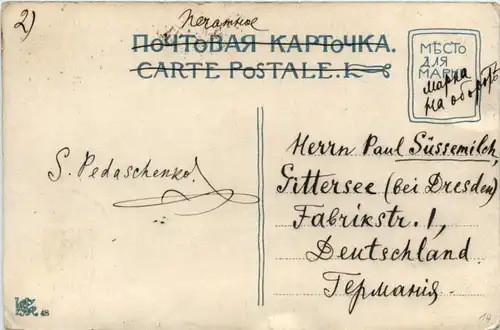 2)
Печатное
ПОЧТОВАЯ КАРТОЧКА.
CARTE POSTALE.
МѢСТО
ДЛЯ
МАРКИ
марка
на оборотѣ
S. Pedaschenko.
Herrn Paul Süssemilch,
Gittersee (bei Dresden)
Fabrikstr. 1,
Deutschland.
Германія.
48
14